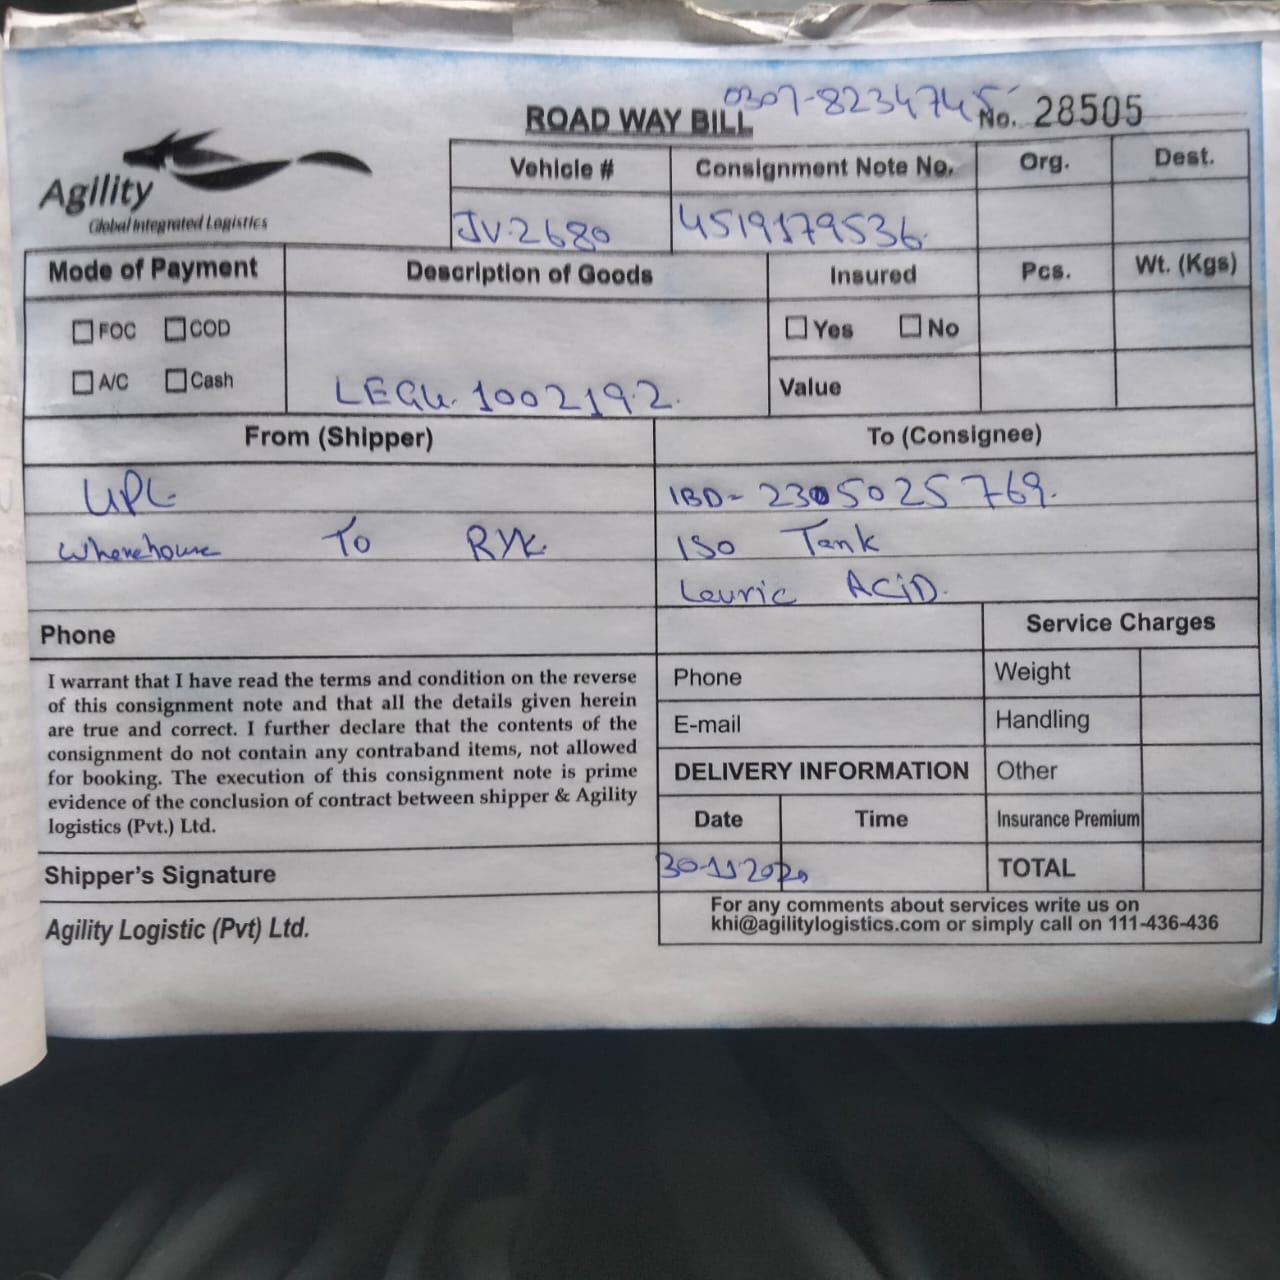 0307-8234745
ROAD WAY BILL
No. 28505
Agility
Global Integrated Logistics
Vehicle # Consignment Note No. Org. Dest.
JV-2680 4519179536
Mode of Payment Description of Goods Insured Pcs. Wt. (Kgs)
FOC COD Yes No
A/C Cash Value
LEGU. 1002192
From (Shipper) To (Consignee)
UPL IBD- 2305025769.
Wherehouse To RYK. ISO Tank
Lauric ACiD.
Phone Service Charges
I warrant that I have read the terms and condition on the reverse
of this consignment note and that all the details given herein
are true and correct. I further declare that the contents of the
consignment do not contain any contraband items, not allowed
for booking. The execution of this consignment note is prime
evidence of the conclusion of contract between shipper & Agility
logistics (Pvt.) Ltd.
Phone Weight
E-mail Handling
DELIVERY INFORMATION Other
Date Time Insurance Premium
Shipper's Signature 30-11-2020 TOTAL
Agility Logistic (Pvt) Ltd.
For any comments about services write us on
khi@agilitylogistics.com or simply call on 111-436-436